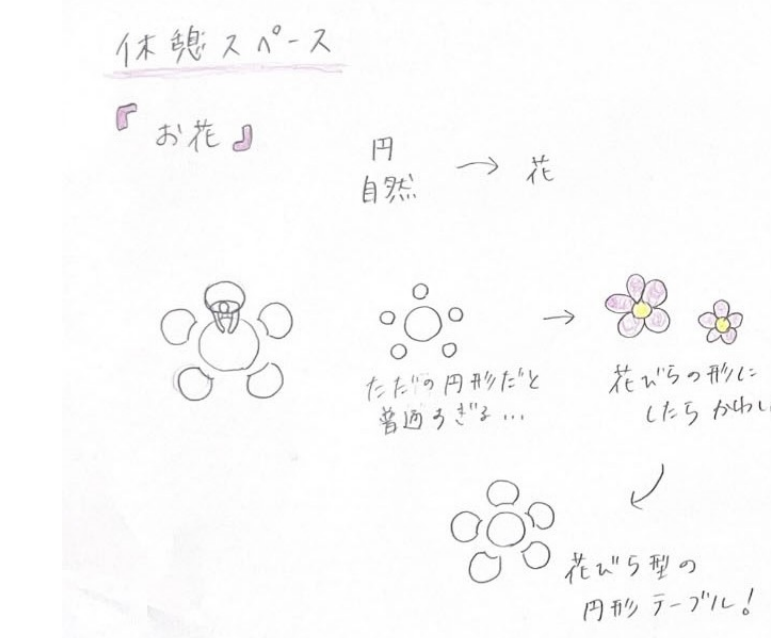 休憩スペース
『お花』
円
自然 → 花
ただの円形だと
普通すぎる...
→
花びらの形に
したら かわい
花びら型の
円形テーブル!